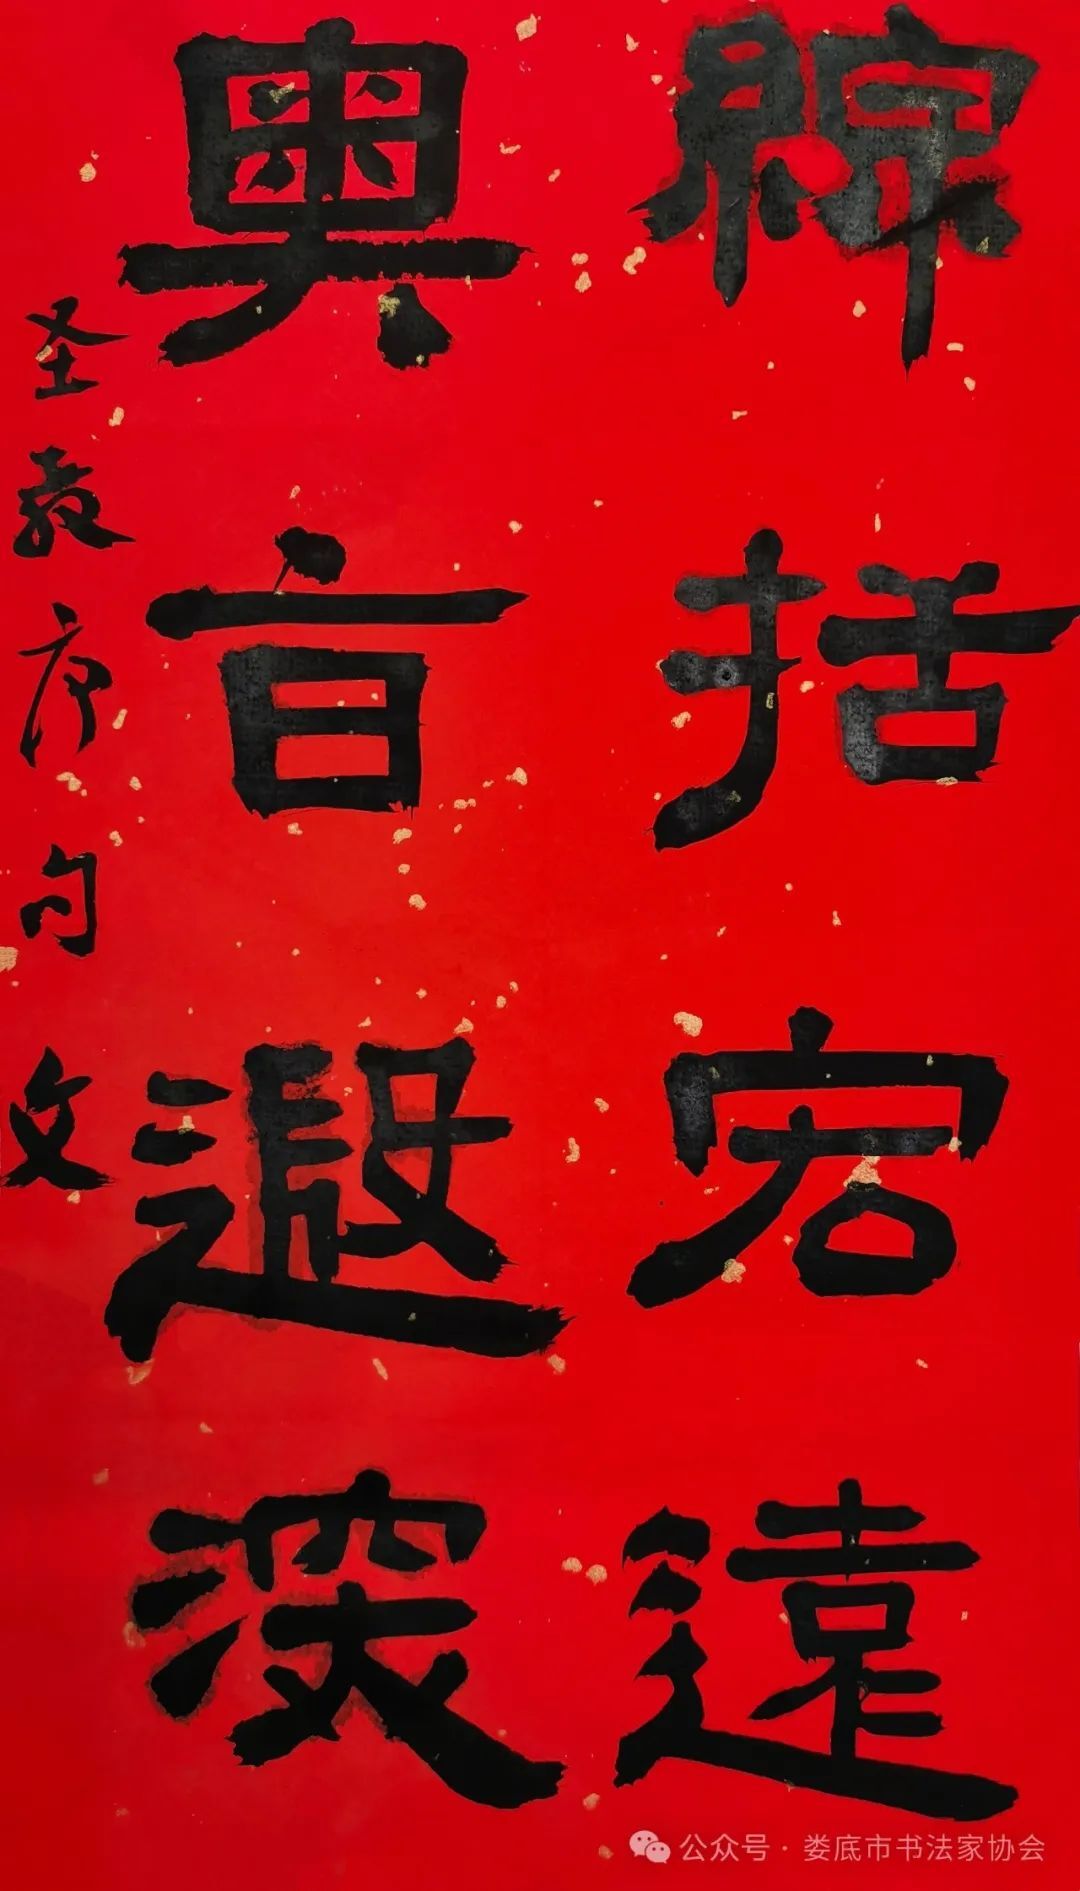 綜括宏遠
奥旨遐深
圣教序句文
公众号 · 娄底市书法家协会